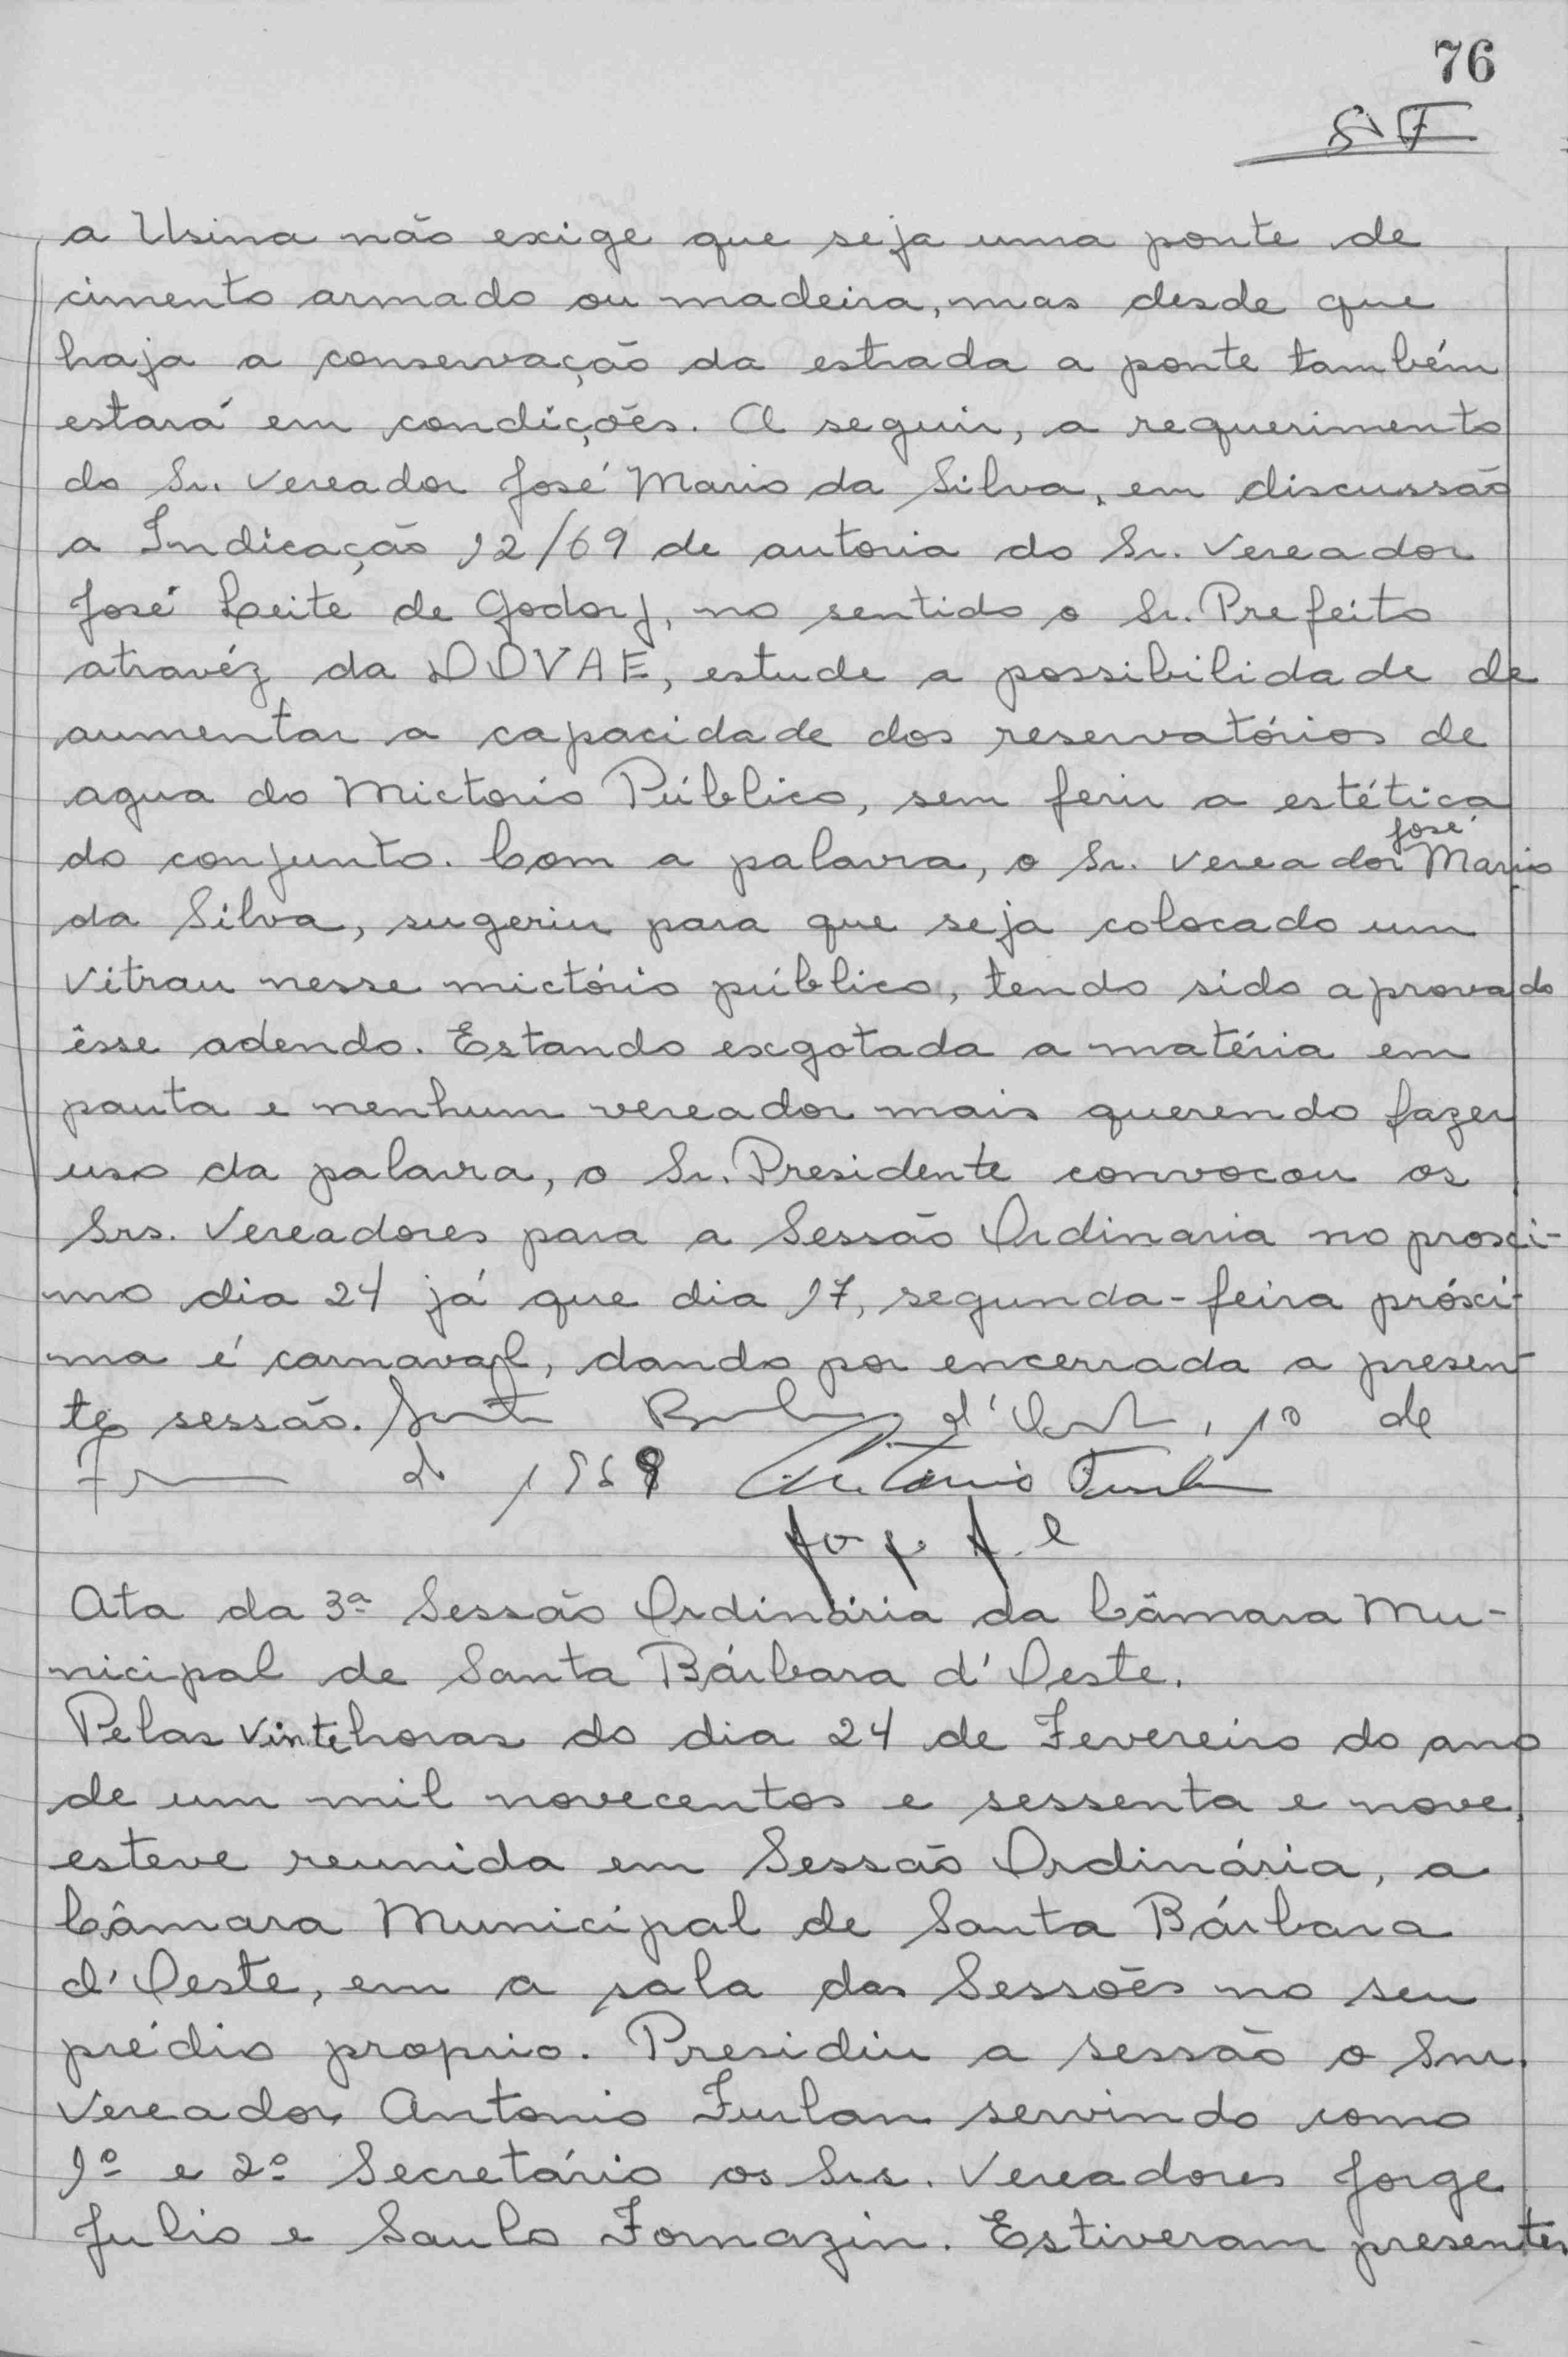 76
a Usina não exige que seja uma ponte de
cimento armado ou madeira, mas desde que
haja a conservação da estrada a ponte também
estará em condições. A seguir, a requerimento
do Sr. Vereador José Mario da Silva, em discussão
a Indicação 12/69 de autoria do Sr. Vereador
José Leite de Godoy, no sentido o Sr. Prefeito
atravéz da DOVAE, estude a possibilidade de
aumentar a capacidade dos reservatórios de
agua do Mictorio Público, sem ferir a estética
do conjunto. Com a palavra, o Sr. Vereador José Mario
da Silva, sugeriu para que seja colocado um
Vitrau nesse mictório público, tendo sido aprovado
êsse adendo. Estando exgotada a matéria em
pauta e nenhum vereador mais querendo fazer
uso da palavra, o Sr. Presidente convocou os
Srs. Vereadores para a Sessão Ordinaria no proxi-
mo dia 24 já que dia 17, segunda-feira próxi-
ma é carnaval, dando por encerrada a presen-
te sessão. Santa Barbara d'Oeste, 10 de
de 1969 Antonio Furlan
Ata da 3ª Sessão Ordinária da Câmara Mu-
nicipal de Santa Bárbara d'Oeste.
Pelas vinte horas do dia 24 de Fevereiro do ano
de um mil novecentos e sessenta e nove,
esteve reunida em Sessão Ordinária, a
Câmara Municipal de Santa Bárbara
d'Oeste, em a sala das Sessões no seu
prédio proprio. Presidiu a sessão o Snr.
Vereador Antonio Furlan servindo como
1º e 2º Secretário os Srs. Vereadores Jorge
Julio e Saulo Fornazin. Estiveram presentes